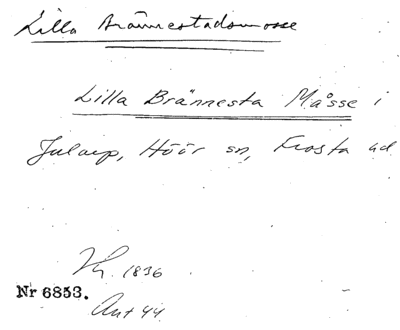 Lilla Brännestadsmosse
Lilla Brännesta Måsse i
Jularp, Höör sn, Frosta hd
1836
Nr 6853.
Ant 44